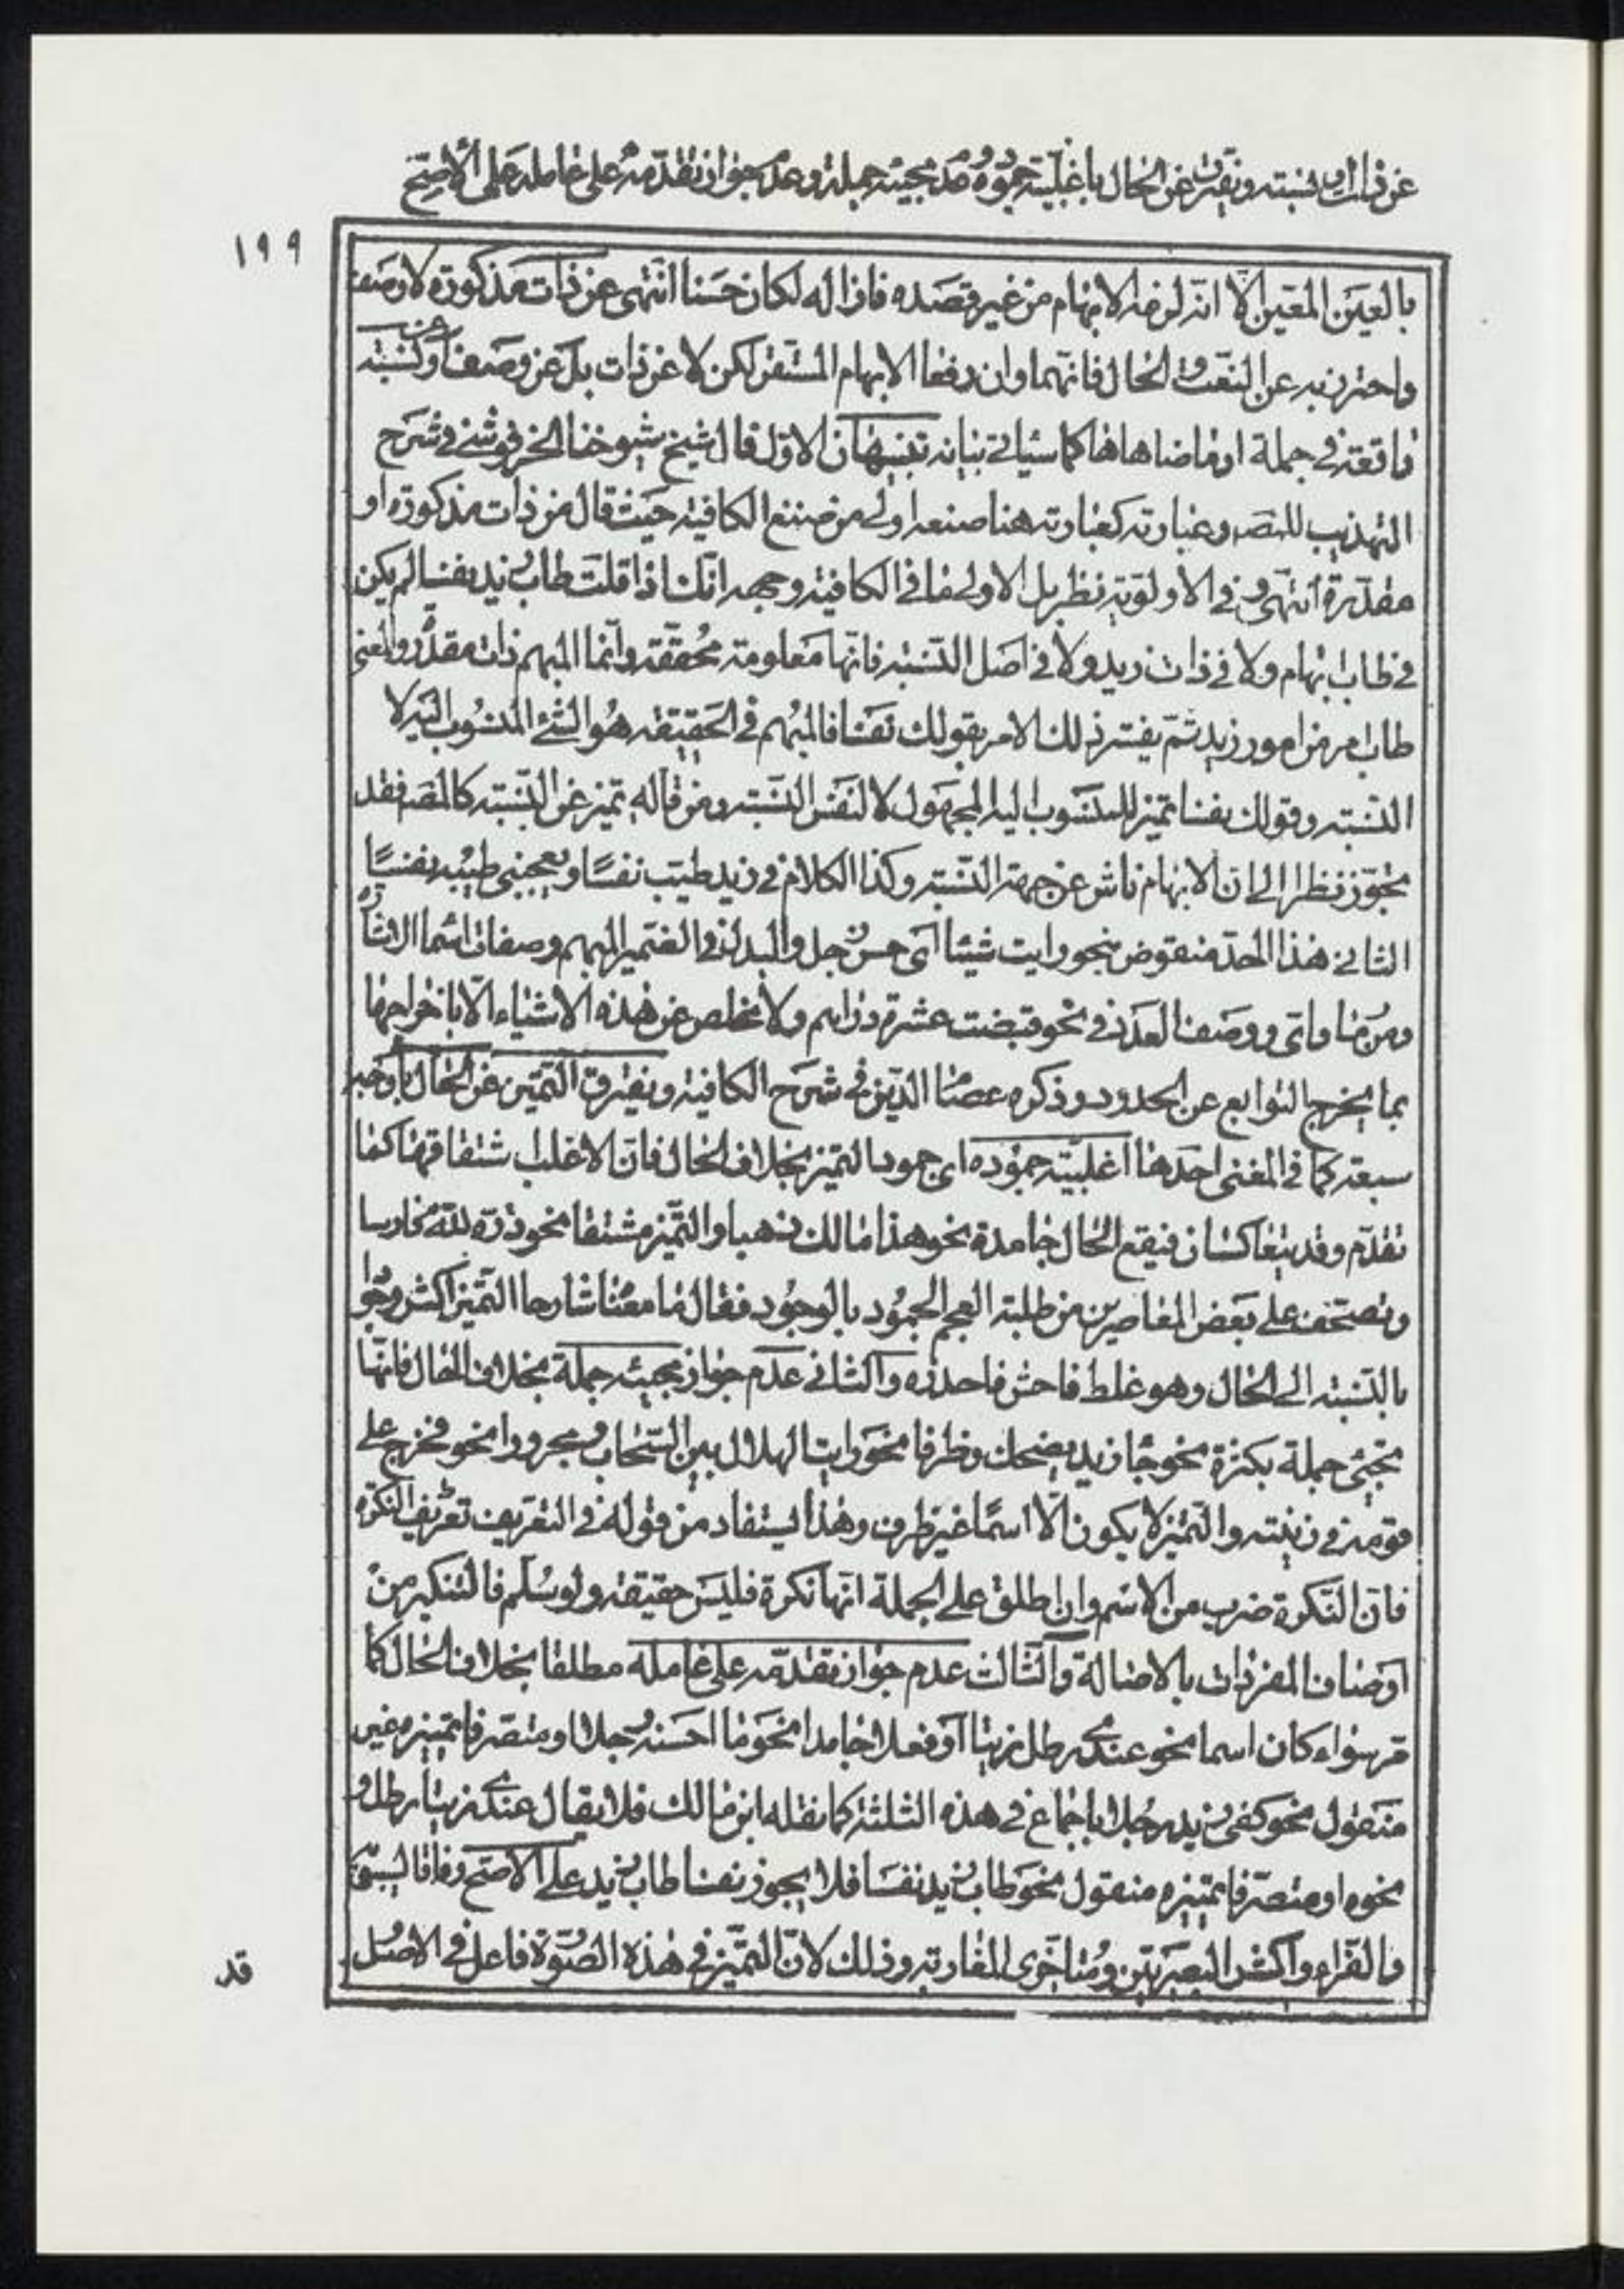 عن ذات او نسبته ويفترق عن الحال باغلبية جموده وعدم مجيئه جملة وعدم جواز تقدمه على عامله على الاصح
١٩٩
بالعين المعين الا انه لزمه الابهام من غير قصده فازاله لكان حسنا انتهى عن ذات مذكورة لا وصف
واحترز به عن النعت والحال فانهما وان رفعا الابهام المستقر لكن لا عن ذات بل عن وصف او عن نسبته
واقعة في جملة او ما ضاهاها كما سياتي بيانه تنبيهان الاول قال شيخ شيوخنا الخرفوشي في شرح
التهذيب للمص وعبارته كعبارته هنا صنعه اولى من صنع الكافية حيث قال من ذات مذكورة او
مقدرة انتهى وفي الاولوية نظر بل الاولى ما في الكافية وجهه انك اذا قلت طاب زيد نفسا لم يكن
في طاب ابهام ولا في ذات زيد ولا في اصل النسبته فانها معلومة محققة وانما المبهم ذات مقدر والمعنى
طاب امر من امور زيد ثم يفسر ذلك الامر بقولك نفسا فالمبهم في الحقيقه هو الشئ المنسوب اليه لا
النسبته وقولك نفسا تميز للمنسوب اليه المجهول لا لنفس النسبته ومن قاله تميز عن النسبته كالمص فقد
تجوز نظرا الى ان الابهام ناش عن جهة النسبته وكذا الكلام في زيد طيب نفسًا ويعجبني طيبه نفسًا
الثاني هذا الحد منقوض بنحو رايت شيئا اى حسن رجل والبدل في الضمير المبهم وصفات اسما الاشارة
ومن وما واي ووصف العدد في نحو قبضت عشرة دراهم ولا مخلص عن هذه الاشياء الا باخراجها
بما يخرج التوابع عن الحدود وذكره عصام الدين في شرح الكافية ويفترق التميز عن الحال باوجه
سبعة كما في المغني احدها اغلبية جموده اى جمود التميز بخلاف الحال فان الاغلب اشتقاقها كما
تقدم وقد يتعاكسان فيقع الحال جامدة نحو هذا مالك ذهبا والتميز مشتقا نحو لله دره فارسا
وتصحف على بعض المعاصرين من طلبة العجم الجمود بالوجود فقال ما معناه شارحا التميز اكثر وجوا
بالنسبته الى الحال وهو غلط فاحش فاحذره والثاني عدم جواز مجيئه جملة بخلاف الحال فانها
تجيئ جملة بكثرة نحو جا زيد يضحك وظرفا نحو رايت الهلال بين السحاب ومجرورا نحو فخرج على
قومه في زينته والتميز لا يكون الا اسمًا غير ظرف وهذا يستفاد من قوله في التعريف تعريف النكرة
فان النكرة ضرب من الاسم وان اطلق على الجملة انها نكرة فليس حقيقه ولو سلم فالتنكير من
اوصاف المفردات بالاصالة والثالث عدم جواز تقدمه على عامله مطلقا بخلاف الحال كما
مر سواء كان اسما نحو عندي رطل زيتا او فعلا جامدا نحو ما احسنه رجلا او متصرفا بتميزه غير
منقول نحو كفى بزيد رجلا باجماع في هذه الثلثة كما نقله ابن مالك فلا يقال عندي زيتا رطل و
نحوه او متصرفا بتميزه منقول نحو طاب زيد نفسا فلا يجوز نفسا طاب زيد على الاصح وفاقا لسيبويه
والفراء واكثر البصريين ومتاخرى المغاربه وذلك لان التميز في هذه الصورة فاعل في الاصل
قد